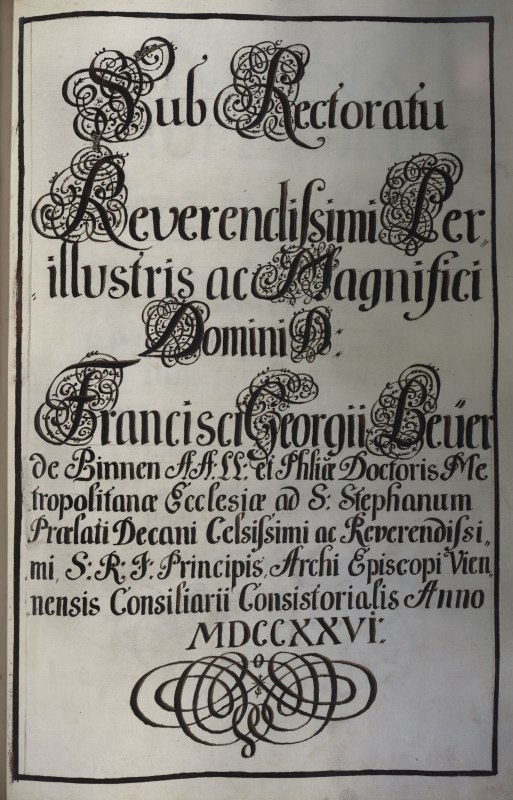 Sub Rectoratu
Reverendiſsimi Per
illustris ac Magnifici
Domini D:
Francisci Georgii Beüer
de Binnen A.A: LL: et Phliæ Doctoris Me
tropolitanæ Ecclesiæ ad S: Stephanum
Prælati Decani Celsiſsimi ac Reverendiſsi,,
mi, S: R: I: Principis, Archi Episcopi Vien,,
nensis Consiliarii Consistorialis Anno
MDCCXXVI: